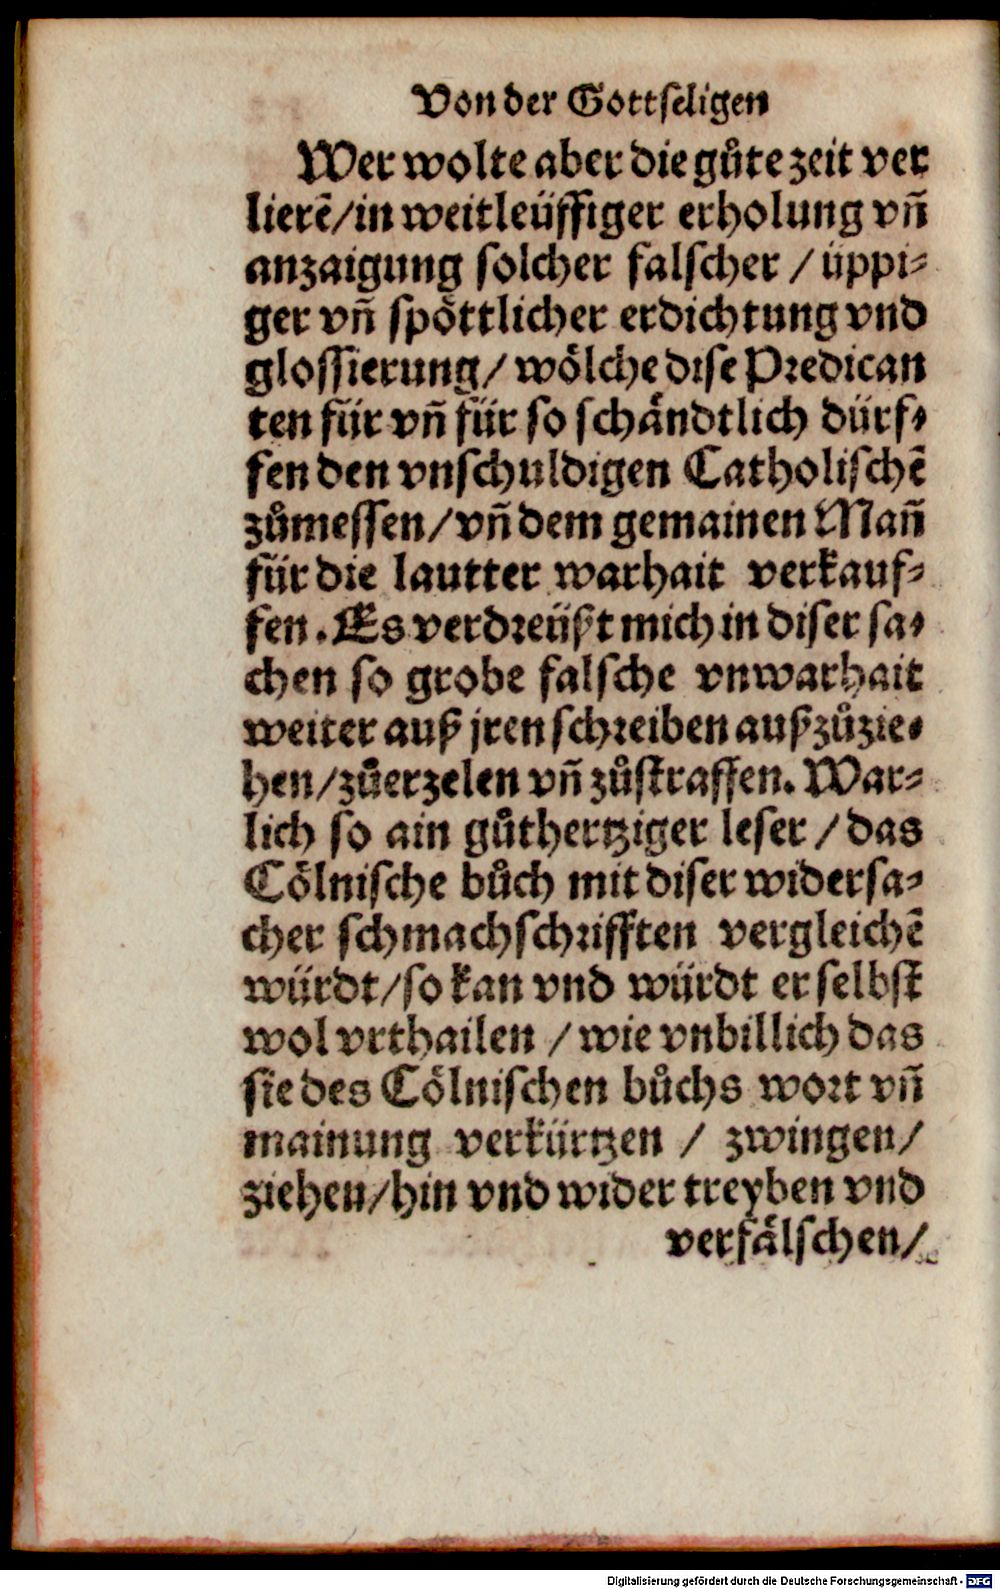 Von der Gottseligen
Wer wolte aber die gůte zeit ver
lierē/in weitleüffiger erholung vñ
anzaigung solcher falscher / üppi⸗
ger vñ spöttlicher erdichtung vnd
glossierung/ wölche dise Predican
ten für vñ für so schändtlich dürf⸗
fen den vnschuldigen Catholischē
zůmessen/vñ dem gemainen Mañ
für die lautter warhait verkauf⸗
fen. Es verdreüßt mich in diser sa⸗
chen so grobe falsche vnwarhait
weiter auß jren schreiben außzůzie⸗
hen/zůerzelen vñ zůstraffen. War⸗
lich so ain gůthertziger leser / das
Cölnische bůch mit diser widersa⸗
cher schmachschrifften vergleichē
würdt/so kan vnd würdt er selbst
wol vrthailen / wie vnbillich das
sie des Cölnischen bůchs wort vñ
mainung verkürtzen / zwingen/
ziehen/hin vnd wider treyben vnd
verfälschen/
Digitalisierung gefördert durch die Deutsche Forschungsgemeinschaft - DFG